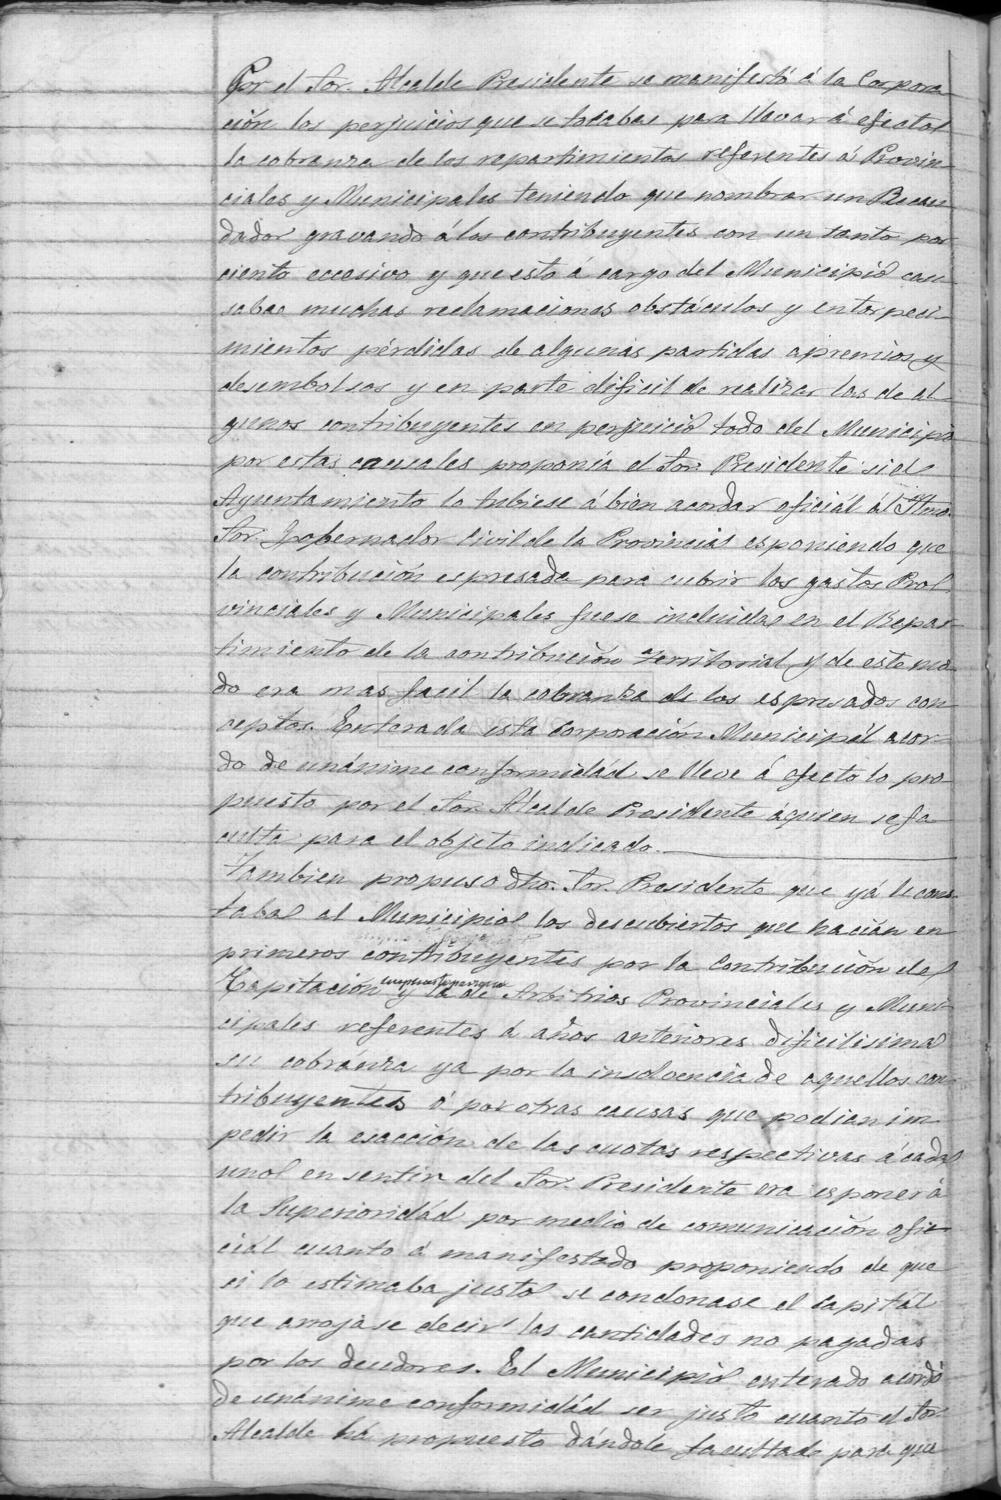 Por el Sor. Alcalde Presidente se manifestó á la Corpora
ción los perjuicios que se tocabas para llevar á efectol
la cobranza de los repartimientos referentes á Provin
ciales y Municipales teniendo que nombrar un Recau
dador gravando á los contribuyentes con un tanto por
ciento eccesivo y que esto á cargo del Municipio cau
sabas muchas reclamaciones obstáculos y entorpeci
mientos pérdidas de algunas partidas apremios y
desembolsos y en parte dificil de realizar las de al
gunos contribuyentes en perjuicio todo del Municipio
por estas causales proponía el Sor. Presidente si el
Ayuntamiento lo tubiese á bien acordar oficiál ál Iltmo.
Sor. Gobernador Civil de la Provincial esponiendo que
la contribución espresada para cubrir los gastos Pro
vinciales y Municipales fuese incluidas en el Repar
timiento de la contribución Territorial y de este mo
do era mas facil la cobranza de los espresados con
ceptos. Enterada esta Corporación Municipál acor
do de unánime conformidád se lleve á efecto lo pro
puesto por el Sor. Alcalde Presidente áquien se fa
culta para el objeto indicado.
Tambien propuso dho. Sor. Presidente que yá le cons
tabal al Municipiol los descubiertos que hacían en
primeros contribuyentes por la Contribución de
Capitación y la de Arbitrios Provinciales y Muni
cipales referentes á años anteriores dificilisima
su cobránza ya por la insolvencia de aquellos con
tribuyentes ó por otras causas que podian im
pedir la esacción de las cuotas respectivas á cada
unol en sentir del Sor. Presidente era esponer á
la Superioridád por medio de comunicación ofi
ciál cuanto á manifestado proponiendo de que
si lo estimaba justol se condonase el Capitál
que arroja se decir las cantidades no pagadas
por los deudores. El Municipiol enterado acordó
de unánime conformidád ser justo cuanto el Sor.
Alcalde há propuesto dándole facultade para que